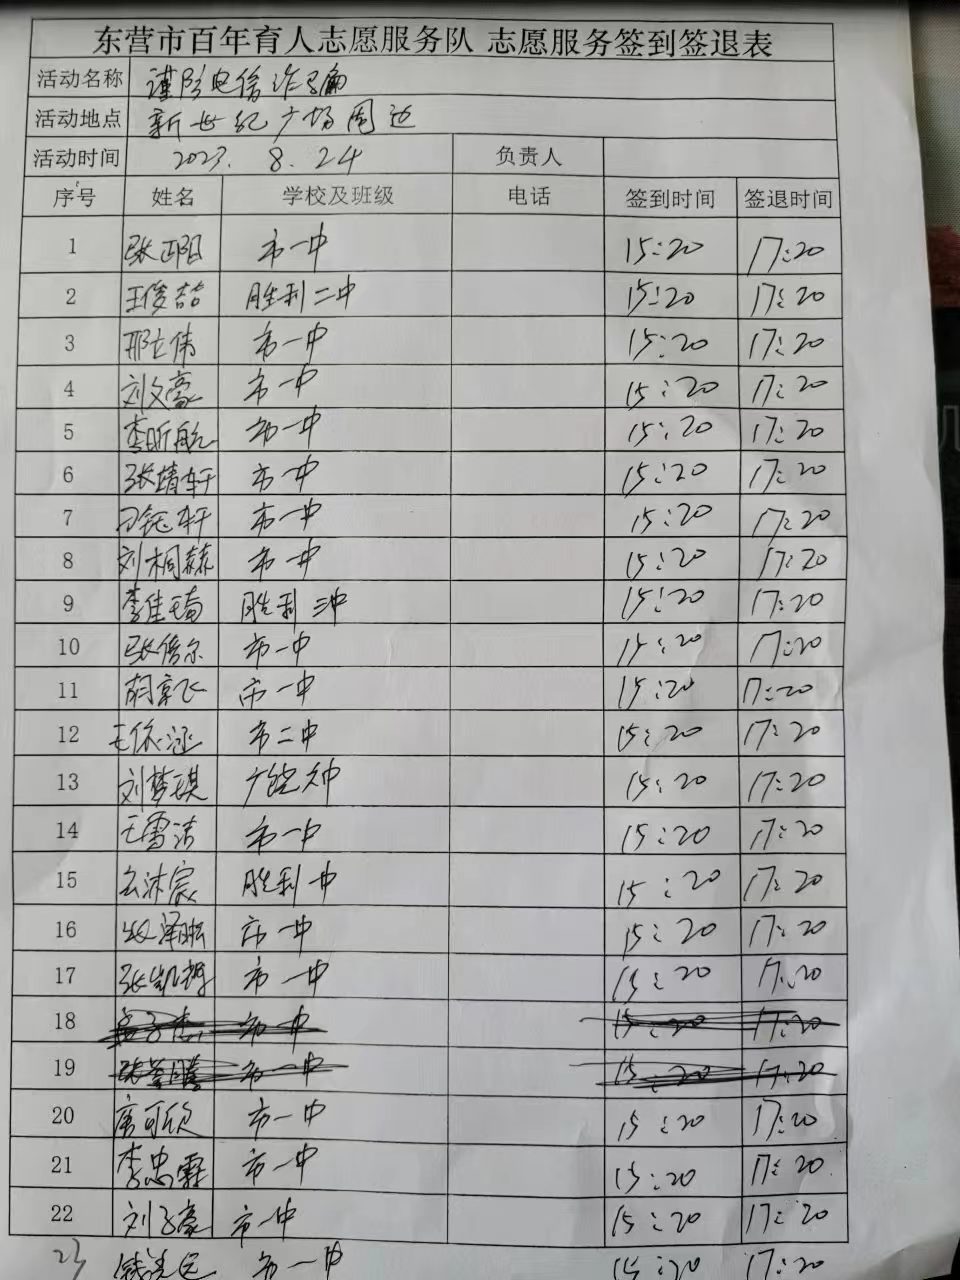 东营市百年育人志愿服务队 志愿服务签到签退表
活动名称 谨防电信诈骗
活动地点 新世纪广场周边
活动时间 2023.8.24 负责人
序号 姓名 学校及班级 电话 签到时间 签退时间
1 张正阳 市一中 15:20 17:20
2 王俊喆 胜利二中 15:20 17:20
3 邢立伟 市一中 15:20 17:20
4 刘文豪 市一中 15:20 17:20
5 李昕航 市一中 15:20 17:20
6 张靖轩 市一中 15:20 17:20
7 钰轩 市一中 15:20 17:20
8 刘桐赫 市一中 15:20 17:20
9 李佳琦 胜利二中 15:20 17:20
10 张倍尔 市一中 15:20 17:20
11 胡京飞 市一中 15:20 17:20
12 王依涵 市二中 15:20 17:20
13 刘梦琪 广饶一中 15:20 17:20
14 王雪洁 市一中 15:20 17:20
15 沐宸 胜利一中 15:20 17:20
16 泽 市一中 15:20 17:20
17 张凯 市一中 15:20 17:20
18 市一中 15:20 17:20
19 张 市一中 15:20 17:20
20 唐可欣 市一中 15:20 17:20
21 李忠霖 市一中 15:20 17:20
22 刘子豪 市一中 15:20 17:20
23 市一中 15:20 17:20